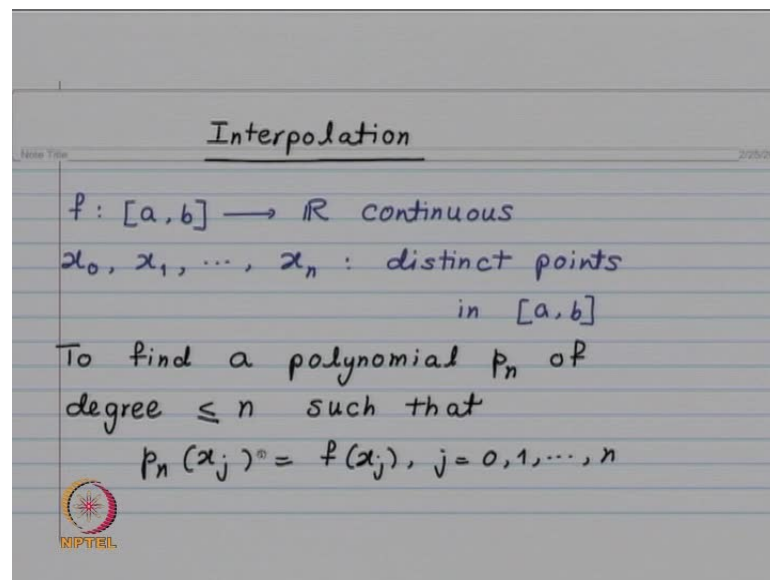 Interpolation
Note Title
2/25/2
f : [a, b] ⟶ ℝ continuous
x₀, x₁, ⋯, xₙ : distinct points
in [a, b]
To find a polynomial pₙ of
degree ≤ n such that
pₙ (xⱼ) = f(xⱼ), j = 0, 1, ⋯, n
NPTEL